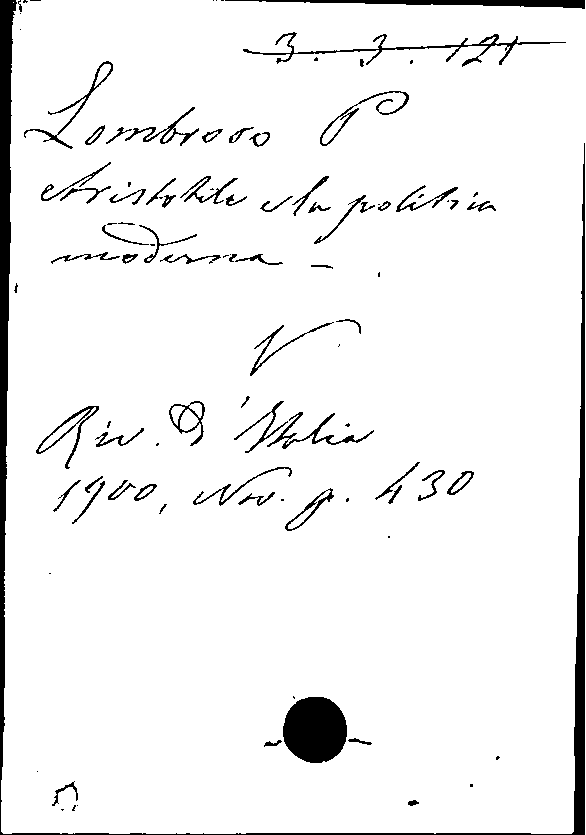 3. 3. 121
Lombroso P
Aristotile e la politica
moderna -
V
Riv. d'Italia
1900, Nov. p. 430